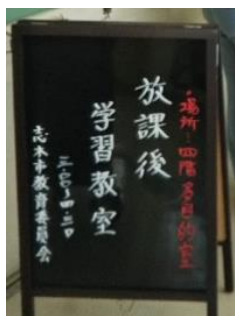 ・場所…四階多目的室
放課後
学習教室
三:〇〇~四:三〇
志木市教育委員会